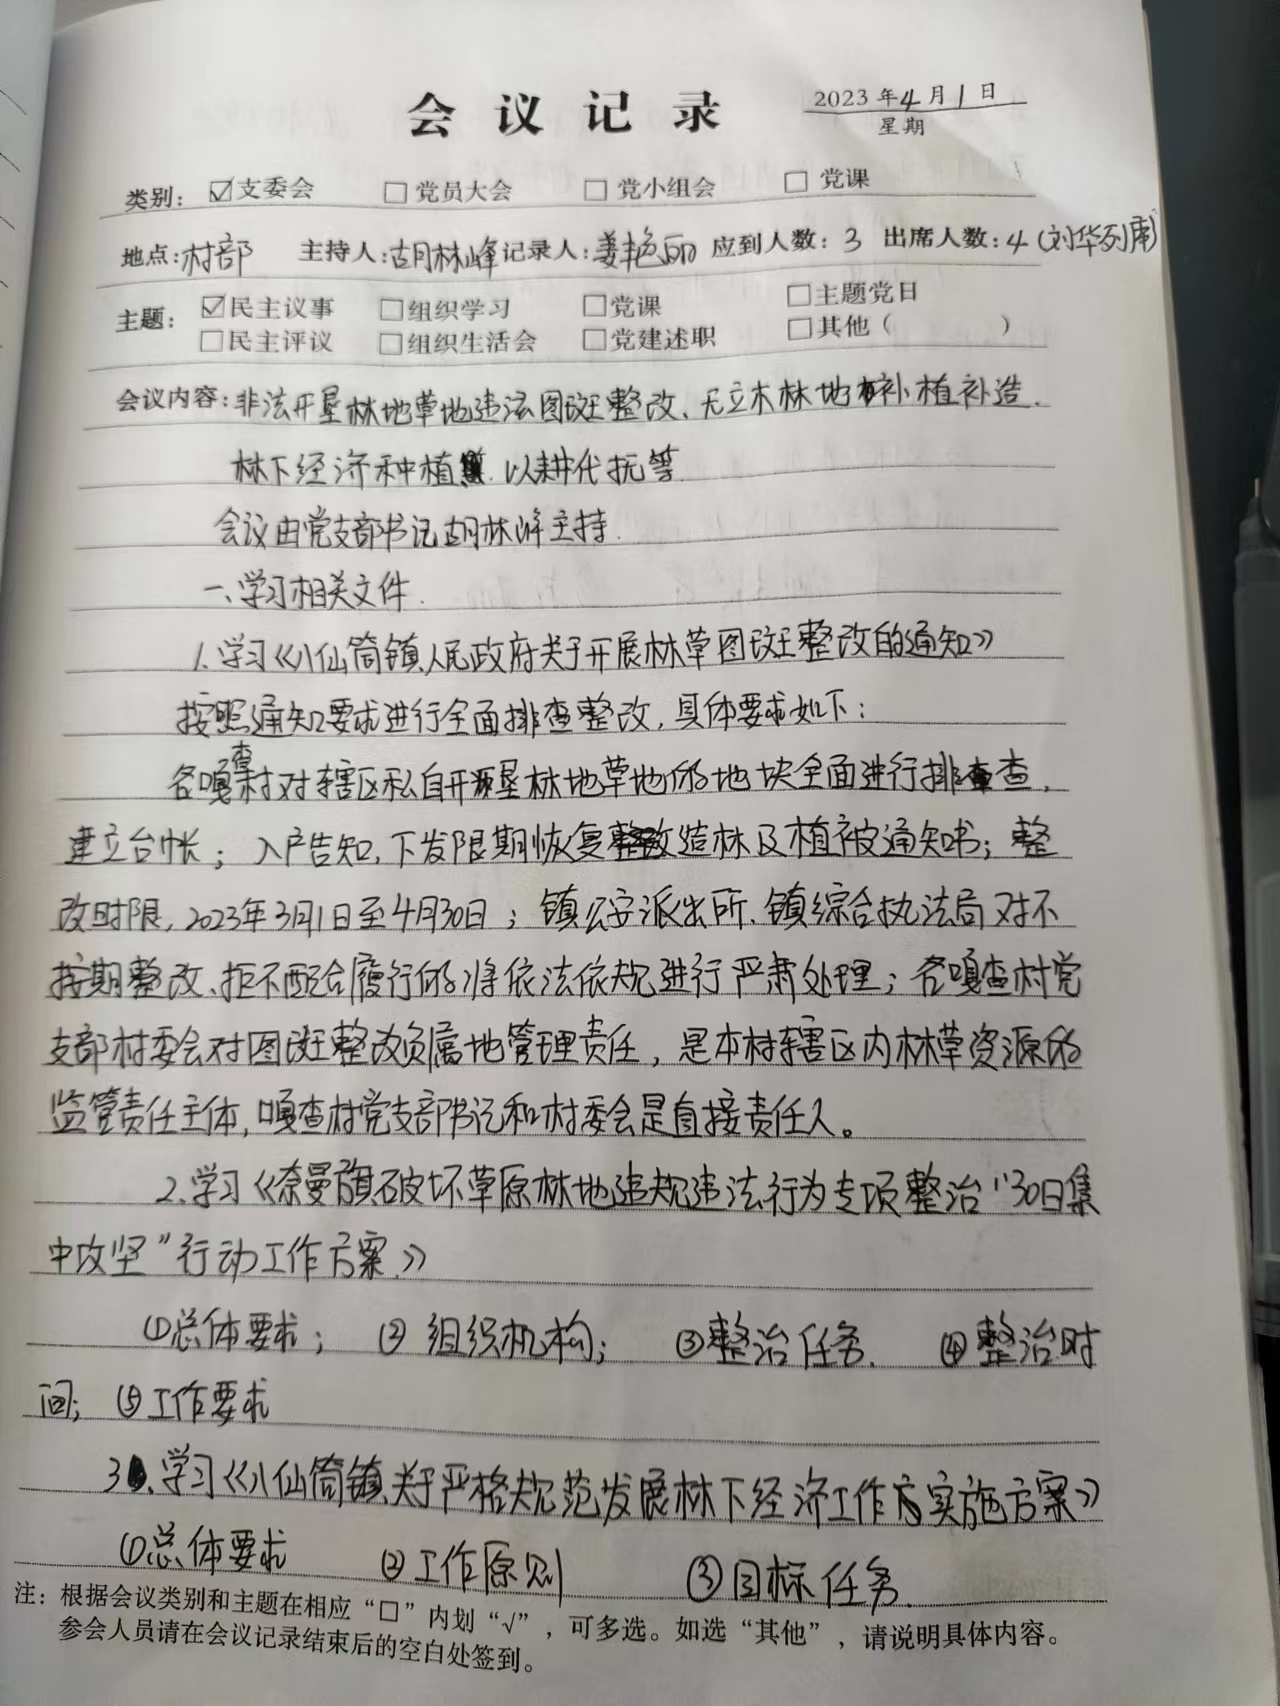 会议记录
2023年4月1日
星期
类别：☑支委会 □党员大会 □党小组会 □党课
地点：村部 主持人：胡林峰 记录人：姜艳丽 应到人数：3 出席人数：4（刘华列席）
主题：☑民主议事 □组织学习 □党课 □主题党日
□民主评议 □组织生活会 □党建述职 □其他（ ）
会议内容：非法开垦林地草地违法图斑整改、无立木林地补植补造、
林下经济种植、以耕代抚等
会议由党支部书记胡林峰主持.
一、学习相关文件.
1.学习《八仙筒镇人民政府关于开展林草图斑整改的通知》
按照通知要求进行全面排查整改，具体要求如下：
各嘎查村对辖区私自开垦林地草地的地块全面进行排查，
建立台帐；入户告知，下发限期恢复造林及植被通知书；整
改时限，2023年3月1日至4月30日；镇公安派出所、镇综合执法局对不
按期整改、拒不配合履行的将依法依规进行严肃处理；各嘎查村党
支部村委会对图斑整改负属地管理责任，是本村辖区内林草资源的
监管责任主体，嘎查村党支部书记和村委会是直接责任人。
2.学习《奈曼旗破坏草原林地违规违法行为专项整治“30日集
中攻坚”行动工作方案》
①总体要求； ②组织机构； ③整治任务. ④整治时
间；⑤工作要求
3.学习《八仙筒镇关于严格规范发展林下经济工作实施方案》
①总体要求 ②工作原则 ③目标任务.
注：根据会议类别和主题在相应“□”内划“√”，可多选。如选“其他”，请说明具体内容。
参会人员请在会议记录结束后的空白处签到。